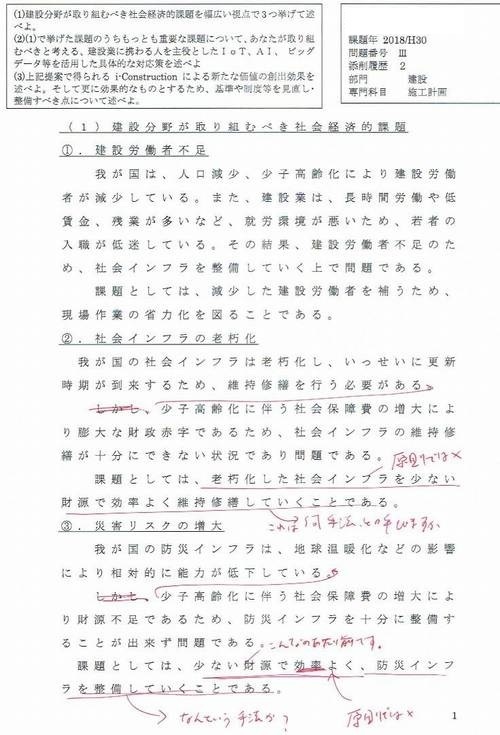 (1)建設分野が取り組むべき社会経済的課題を幅広い視点で3つ挙げて述
べよ。
(2)(1)で挙げた課題のうちもっとも重要な課題について、あなたが取り組
むべきと考える、建設業に携わる人を主役としたIoT、AI、ビッグ
データ等を活用した具体的な対応策を述べよ
(3)上記提案で得られる i-Construction による新たな価値の創出効果を
述べよ。そして更に効果的なものとするため、基準や制度等を見直し・
整備すべき点について述べよ。
課題年 2018/H30
問題番号 Ⅲ
添削履歴 2
部門 建設
専門科目 施工計画
(1)建設分野が取り組むべき社会経済的課題
①.建設労働者不足
我が国は、人口減少、少子高齢化により建設労働
者が減少している。また、建設業は、長時間労働や低
賃金、残業が多いなど、就労環境が悪いため、若者の
入職が低迷している。その結果、建設労働者不足のた
め、社会インフラを整備していく上で問題である。
課題としては、減少した建設労働者を補うため、
現場作業の省力化を図ることである。
②.社会インフラの老朽化
我が国の社会インフラは老朽化し、いっせいに更新
時期が到来するため、維持修繕を行う必要がある。
しかし、少子高齢化に伴う社会保障費の増大によ
り膨大な財政赤字であるため、社会インフラの維持修
繕が十分にできない状況であり問題である。
原則では×
課題としては、老朽化した社会インフラを少ない
財源で効率よく維持修繕していくことである。
③.災害リスクの増大
我が国の防災インフラは、地球温暖化などの影響
により相対的に能力が低下している。
しかも、少子高齢化に伴う社会保障費の増大によ
り財源不足であるため、防災インフラを十分に整備す
ることが出来ず問題である。
課題としては、少ない財源で効率よく、防災インフ
ラを整備していくことである。
なんという手法か?
原則では×
1